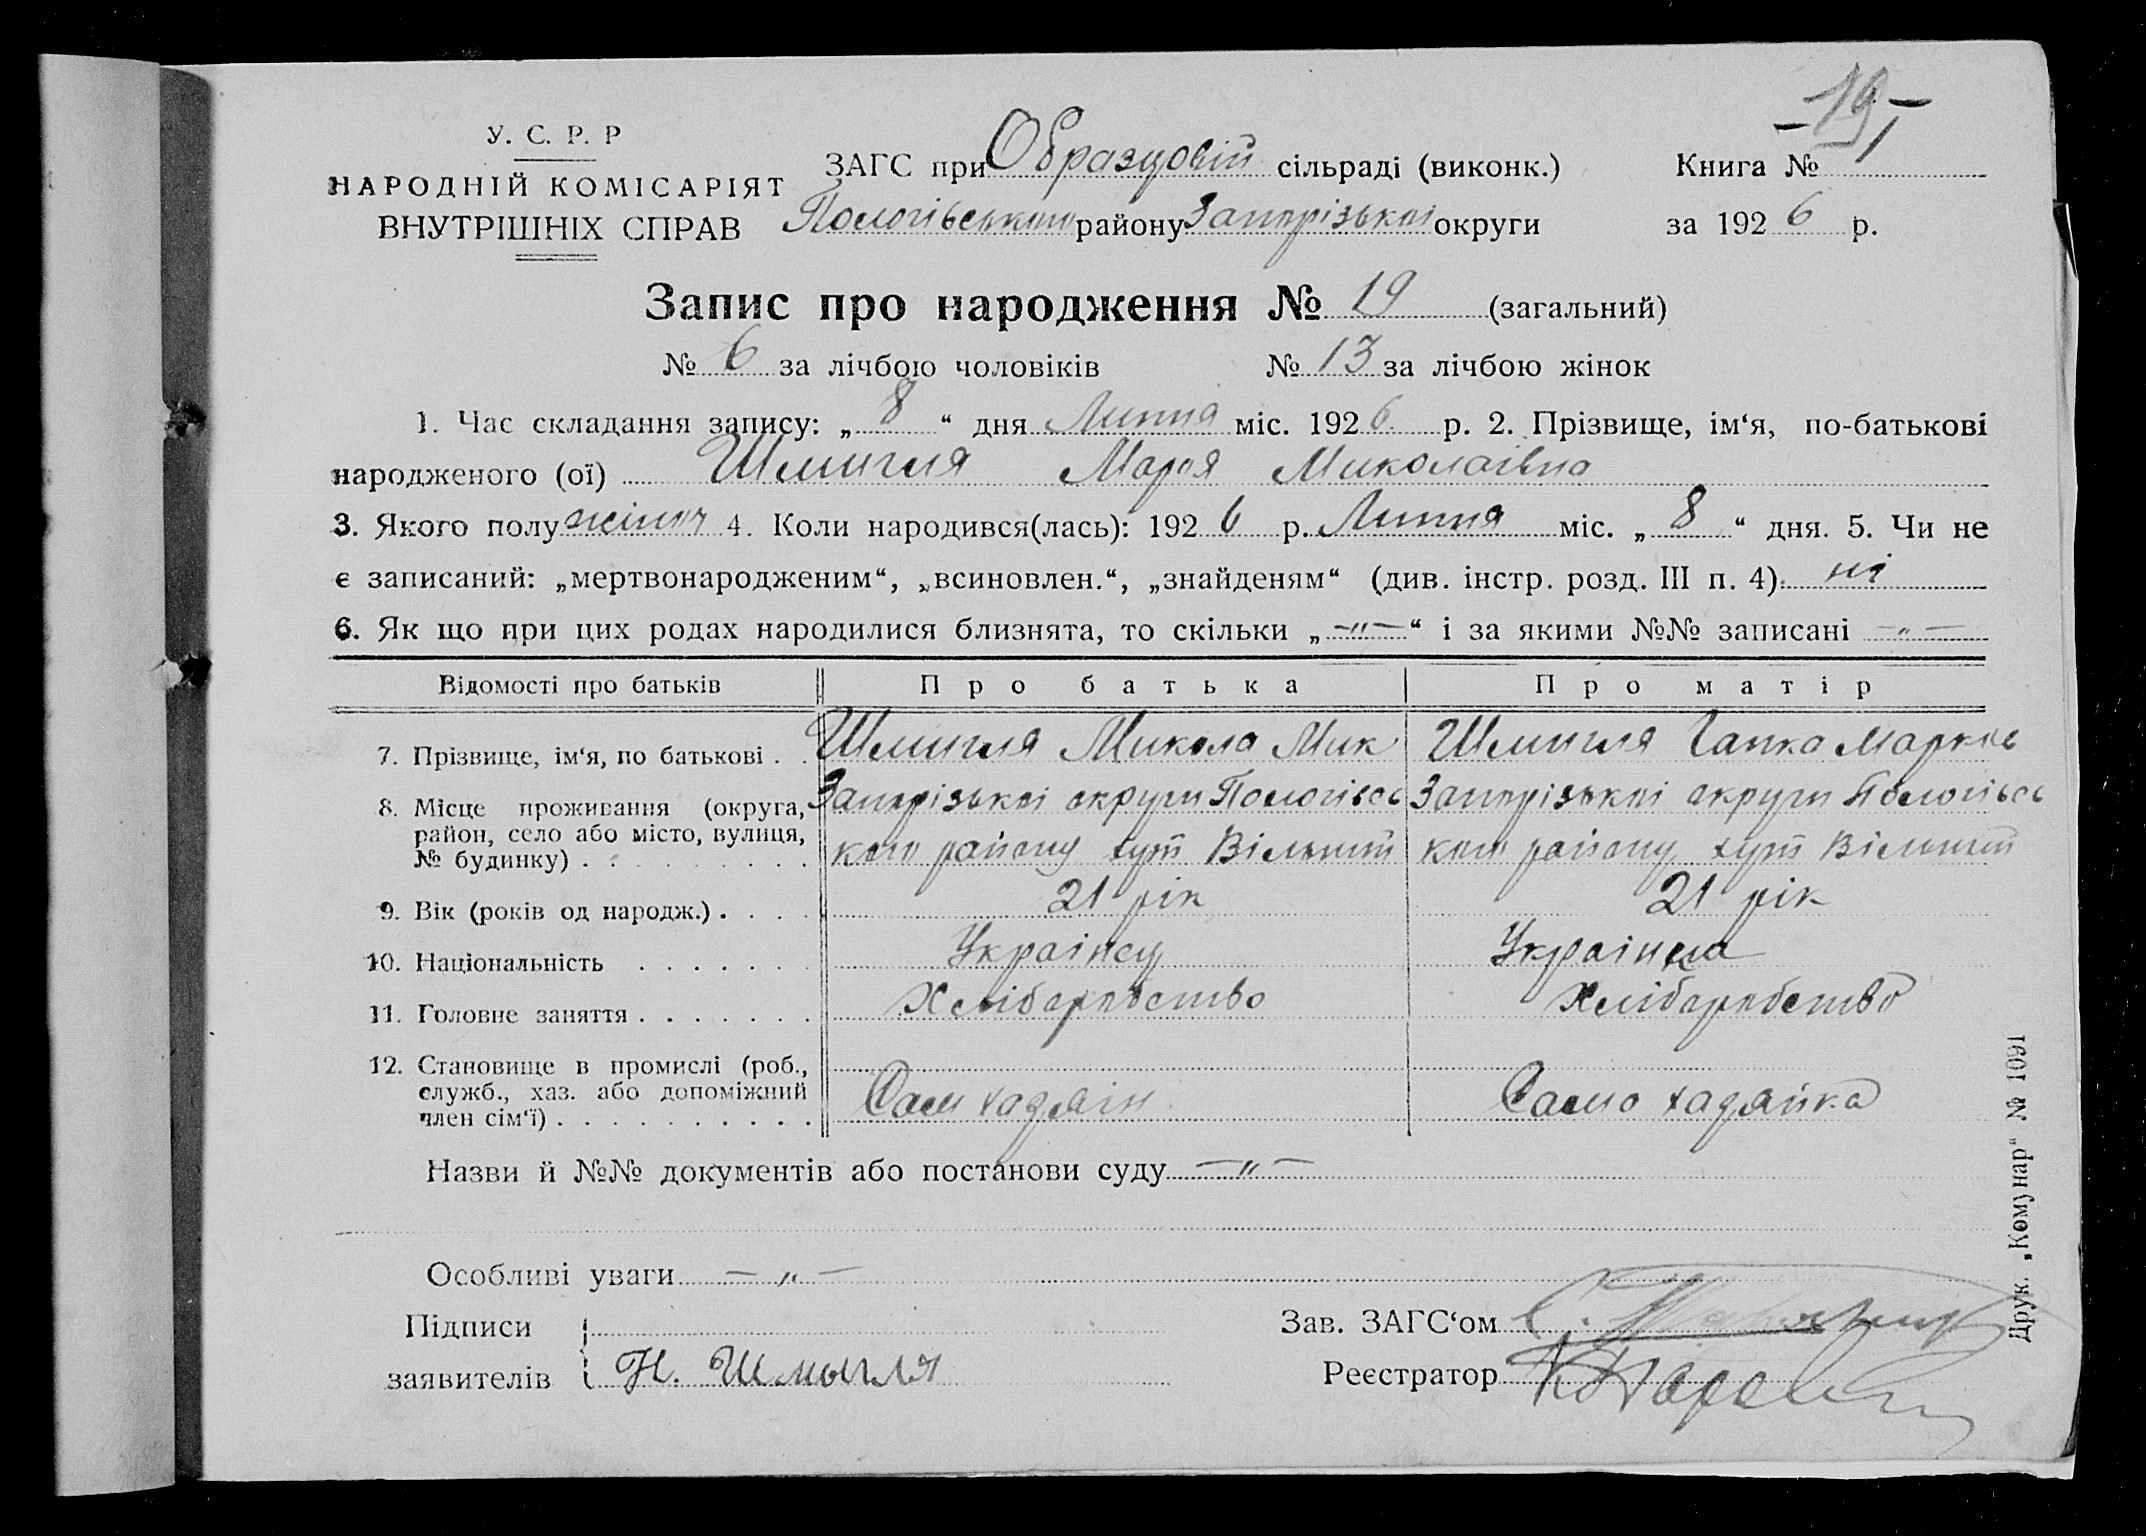 -19-
У. С. Р. Р
НАРОДНІЙ КОМІСАРІЯТ
ВНУТРІШНІХ СПРАВ
ЗАГС при Образцовій сільраді (виконк.) Книга №
Пологівського району Запорізької округи за 1926 р.
Запис про народження № 19 (загальний)
№ 6 за лічбою чоловіків № 13 за лічбою жінок
1. Час складання запису: „ 8 “ дня Липня міс. 1926 р. 2. Прізвище, ім‘я, по-батькові
народженого (ої) Шмигля Марія Миколаівна
3. Якого полу жіноч 4. Коли народився(лась): 1926 р. Липня міс. „ 8 “ дня. 5. Чи не
є записаний: „мертвонародженим“, „всиновлен.“, „знайденям“ (див. інстр. розд. III п. 4). ні
6. Як що при цих родах народилися близнята, то скільки „ -„- “ і за якими №№ записані -„-
Відомості про батьків Про батька Про матір
7. Прізвище, ім‘я, по батькові . . Шмигля Микола Мик Шмигля Гапка Марків
8. Місце проживання (округа, район, село або місто, вулиця, № будинку) . . . . . . . . .
Запорізькоі округи Пологівсь Запорізькоі округи Пологівсь
кого району хут Вільнит кого району хут Вільнит
9. Вік (років од народж.) . . . . 21 рік 21 рік
10. Національність . . . . . . . Українец Українка
11. Головне заняття . . . . . . . Хліборобство Хліборобство
12. Становище в промислі (роб., служб., хаз. або допоміжний член сім‘ї) . . . . . . . . . .
Сам хадяін Само хадяйка
Назви й №№ документів або постанови суду -„-
Особливі уваги -„-
Підписи Зав. ЗАГС‘ом
заявителів Н. Шмыгля Реєстратор
Друк. „Комунар“ № 1091